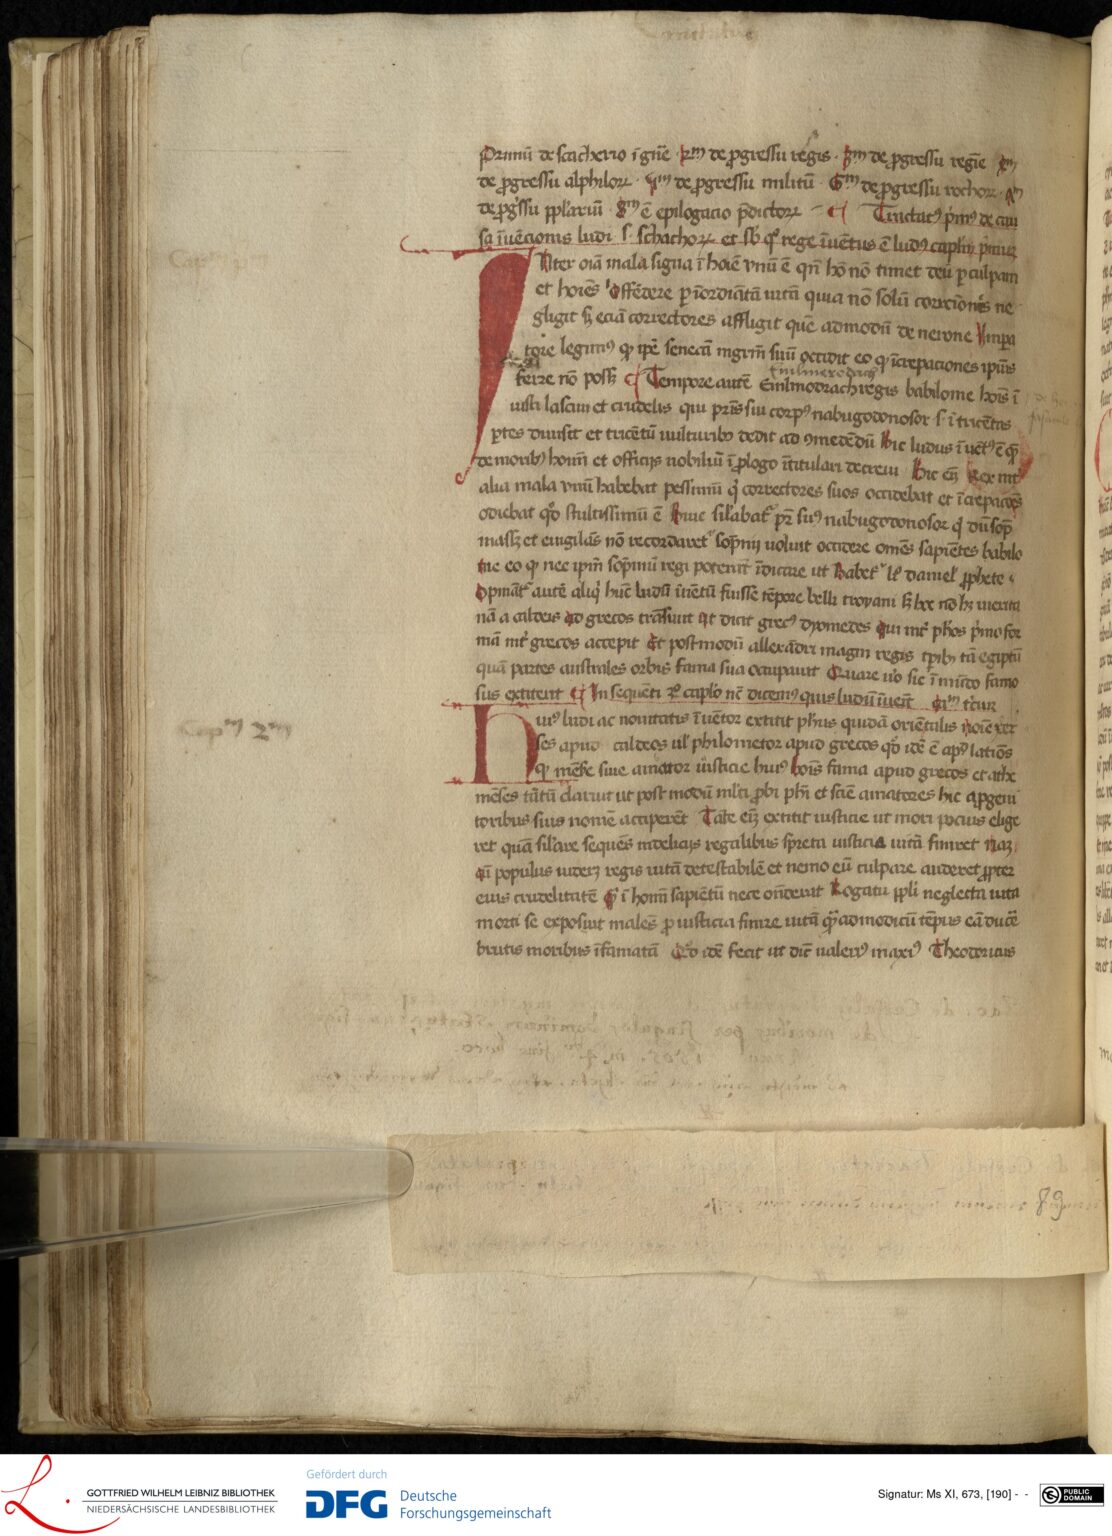 Primū de scacherio ī gn̄e · 2m de ꝓgressu regis · 3m de ꝓgressu regīe 4m
de ꝓgressu alphiloꝝ · 5m de ꝓgressu militū · 6m de ꝓgressu rochoꝝ · 7m
de ꝓgꝰssu pplariū · 8m ē epilogacio p̄dictoꝝ Tractatꝰ p̄mꝰ de cau
sa īuēcionis ludi s· schachoꝝ et sb̄ qͦ rege īuētus ē ludꝰ caplm̄ p̄muꝫ
Nter oīa mala signa ī hoīe vnū ē qn̄ hō nō timet deū p culpam
et hoīes offēdere p īordīatā vitā quia nō solū correcionēs ne
gligit sꝫ eciā correctores affligit quē admodū de nerone Impa
tore legimꝰ qꝫ ip̄e senecā mgrm̄ suū occidit eo qꝫ īcrepaciones ipīus
ferre nō possꝫ Tempore autē Euilmodrach regis babilonie hoīs ī
Euilmerodach
iusti lasciui et crudelis qui pr̄is sui corpꝰ nabugodonosor s· ī tricētas
ptes diuisit et tricētū vulturibꝰ dedit ad ꝯmedēdū Hic ludus īuētꝰ ē qͦ
de moribꝰ homī et officijs nobiliū ī ꝓlogo ītitulari decreui Hic em̄ Rex int̄
alia mala vnū habebat pessimū qꝫ correctores suos occidebat et īcrepacōes
odiebat qd̄ stultissimū ē Huic silabatͬ pr̄ suꝰ nabugodonosor qͥ dū sop̄
niassꝫ et euigilās nō recordaretͬ sop̄nij voluit occidere omēs sapiētes babilo
nie eo qꝫ nec ipm̄ sop̄niū regi poterāt īdicare ut habetͬ ll̄ daniel ꝓphete ·
Opināt autē aliqͥ hūc ludū īuētū fuisse tēpore belli troyani sꝫ hoc nō hꝫ verita
nā a caldeis ad grecos trāsiuit ut dicit grecꝰ dyomedes qui int̄ phōs p̄mo for
mā int̄ grecos accepit Et postmodū allexādri magni regis tpībꝰ tā egiptū
quā partes australes orbis fama sua occupauit Quare vͦo sic ī mūdo famo
sus extiterit In sequēti 2o caplo nē dicemꝰ quis ludū īuenit Caͫ tcīuꝫ
uiꝰ ludi ac nouitatis īuētor extitit ph̄us quidā oriētalis noīe xer
ses apud caldeos vl̄ philometor apud grecos qd̄ idē ē apꝰ latīos
qꝫ mēse siue amator iusticie huiꝰ hoīs fama apud grecos et athe
niēses tātū claruit ut post modū ml̄ti ꝓbi phi et sciē amatores hic a ꝓgeni
toribus suis nomē acciperēt Tāte em̄ extitit iusticie ut mori pocius elige
ret quā silare sequēs indelicijs regalibus spreta iusticia vitā finiret Naꝫ
cū populus viderꝫ regis vitā detestabilē et nemo eū culpare auderet ꝓpter
eius crudelitatē qͥ ī homī sapiētū nece onderat Rogatu ppli neglecta vita
morti se exposuit malēs ꝓ iusticia finire vitā qͣ admodicū tēpus eā ducē
brutis moribus īfamatā Qd̄ idē fecit ut dic̄t valeriꝰ maxiꝰ Theodoricus
Capm 2m
89
GOTTFRIED WILHELM LEIBNIZ BIBLIOTHEK
NIEDERSÄCHSISCHE LANDESBIBLIOTHEK
Gefördert durch
DFG Deutsche
Forschungsgemeinschaft
Signatur: Ms XI, 673, [190] - -
PUBLIC
DOMAIN